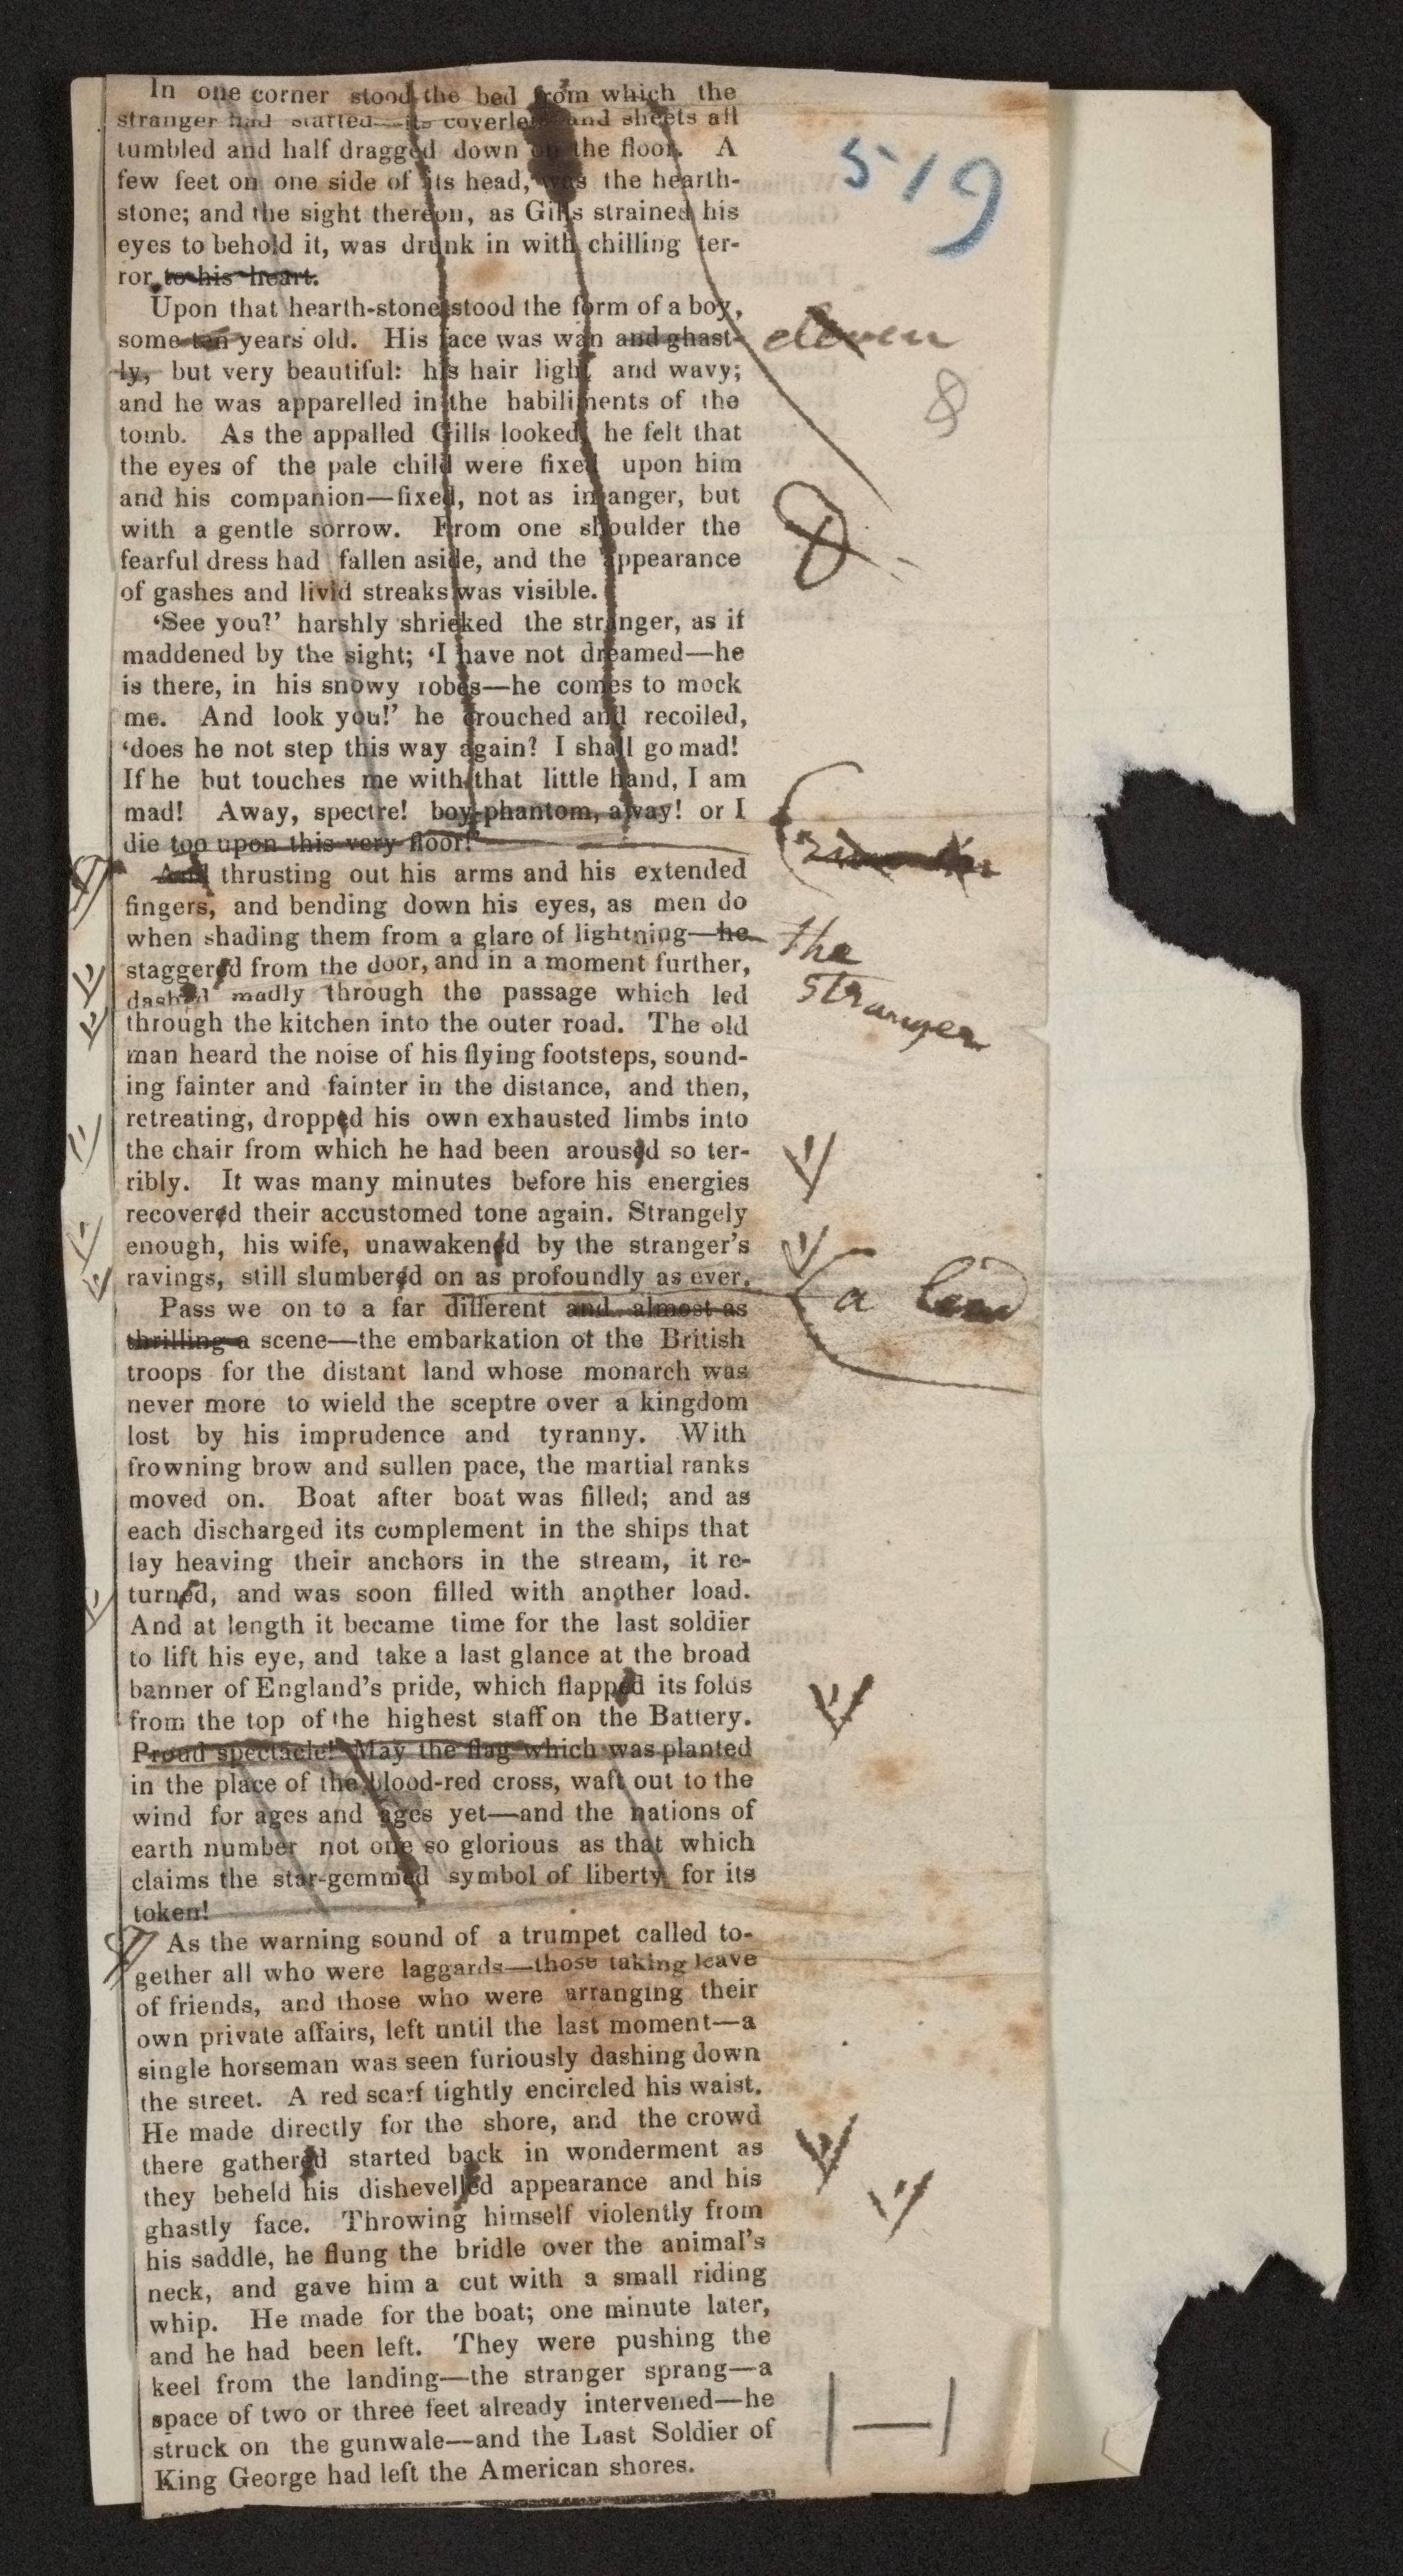 In one corner stood the bed from which the
stranger had started—its coverlets and sheets all
tumbled and half dragged down on the floor. A
few feet on one side of its head, was the hearth-
stone; and the sight thereon, as Gills strained his
eyes to behold it, was drunk in with chilling ter-
ror to his heart.
Upon that hearth-stone stood the form of a boy,
some ten years old. His face was wan and ghast-
ly, but very beautiful: his hair light and wavy;
and he was apparelled in the habiliments of the
tomb. As the appalled Gills looked, he felt that
the eyes of the pale child were fixed upon him
and his companion—fixed, not as in anger, but
with a gentle sorrow. From one shoulder the
fearful dress had fallen aside, and the appearance
of gashes and livid streaks was visible.
‘See you?’ harshly shrieked the stranger, as if
maddened by the sight; ‘I have not dreamed—he
is there, in his snowy robes—he comes to mock
me. And look you!’ he crouched and recoiled,
‘does he not step this way again? I shall go mad!
If he but touches me with that little hand, I am
mad! Away, spectre! boy-phantom, away! or I
die too upon this very floor!’
And thrusting out his arms and his extended
fingers, and bending down his eyes, as men do
when shading them from a glare of lightning—he
staggered from the door, and in a moment further,
dashed madly through the passage which led
through the kitchen into the outer road. The old
man heard the noise of his flying footsteps, sound-
ing fainter and fainter in the distance, and then,
retreating, dropped his own exhausted limbs into
the chair from which he had been aroused so ter-
ribly. It was many minutes before his energies
recovered their accustomed tone again. Strangely
enough, his wife, unawakened by the stranger’s
ravings, still slumbered on as profoundly as ever.
Pass we on to a far different and almost as
thrilling a scene—the embarkation of the British
troops for the distant land whose monarch was
never more to wield the sceptre over a kingdom
lost by his imprudence and tyranny. With
frowning brow and sullen pace, the martial ranks
moved on. Boat after boat was filled; and as
each discharged its complement in the ships that
lay heaving their anchors in the stream, it re-
turned, and was soon filled with another load.
And at length it became time for the last soldier
to lift his eye, and take a last glance at the broad
banner of England’s pride, which flapped its folds
from the top of the highest staff on the Battery.
Proud spectacle! May the flag which was planted
in the place of the blood-red cross, waft out to the
wind for ages and ages yet—and the nations of
earth number not one so glorious as that which
claims the star-gemmed symbol of liberty for its
token!
As the warning sound of a trumpet called to-
gether all who were laggards—those taking leave
of friends, and those who were arranging their
own private affairs, left until the last moment—a
single horseman was seen furiously dashing down
the street. A red scarf tightly encircled his waist.
He made directly for the shore, and the crowd
there gathered started back in wonderment as
they beheld his dishevelled appearance and his
ghastly face. Throwing himself violently from
his saddle, he flung the bridle over the animal’s
neck, and gave him a cut with a small riding
whip. He made for the boat; one minute later,
and he had been left. They were pushing the
keel from the landing—the stranger sprang—a
space of two or three feet already intervened—he
struck on the gunwale—and the Last Soldier of
King George had left the American shores.
519
eleven
8
the
stranger
a lead